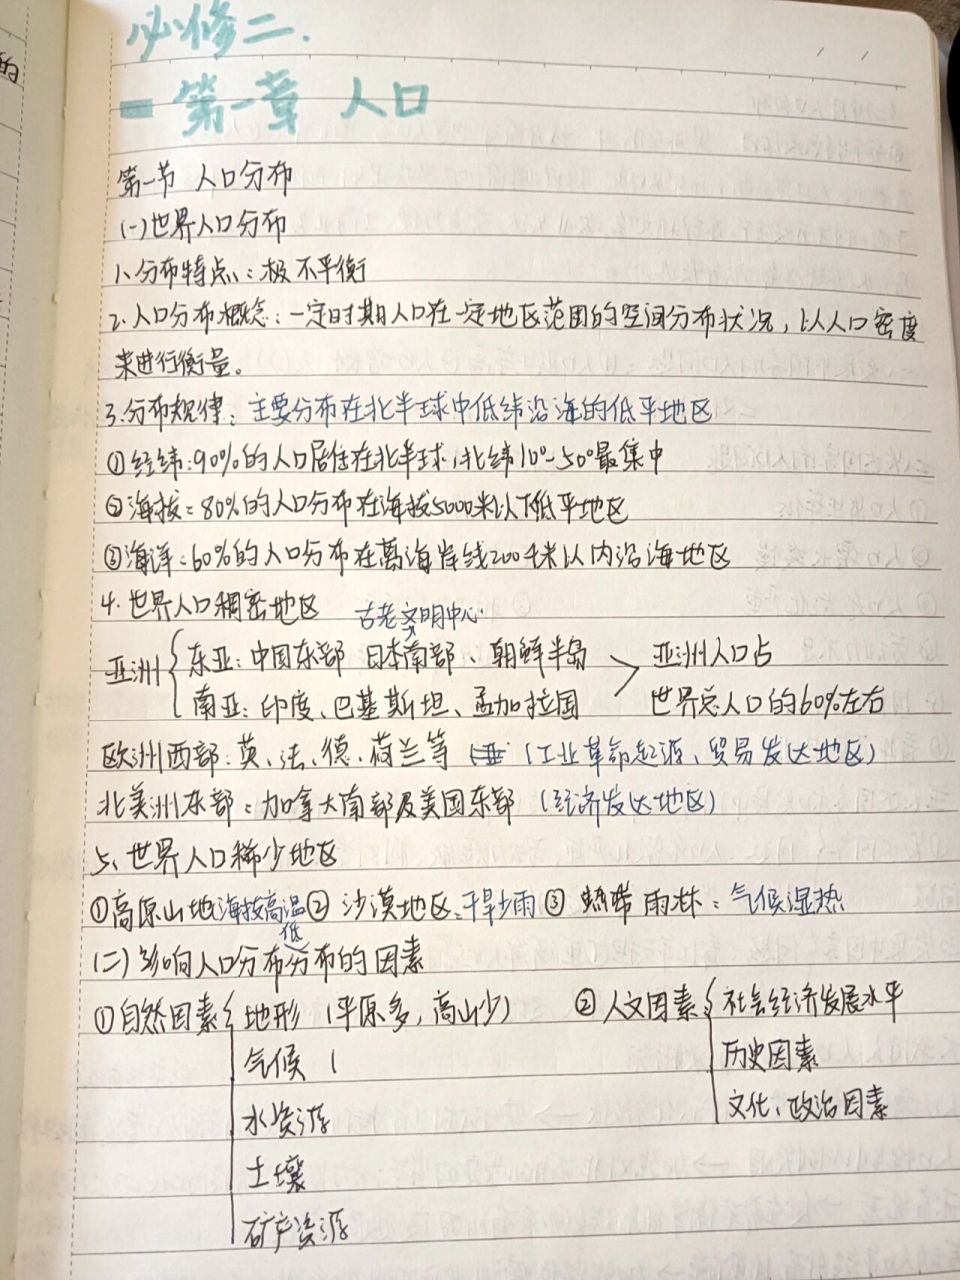 必修二.
第一章 人口
第一节 人口分布
(一)世界人口分布
1、分布特点:极不平衡
2.人口分布概念:一定时期人口在一定地区范围的空间分布状况,以人口密度
来进行衡量。
3.分布规律:主要分布在北半球中低纬沿海的低平地区
①经纬:90%的人口居住在北半球,北纬10°-50°最集中
②海拔:80%的人口分布在海拔5000米以下低平地区
③海洋:60%的人口分布在离海岸线200千米以内沿海地区
4.世界人口稠密地区 古老文明中心
亚洲 东亚:中国东部 日本南部、朝鲜半岛 亚洲人口占
南亚:印度、巴基斯坦、孟加拉国 世界总人口的60%左右
欧洲西部:英、法、德、荷兰等 (工业革命起源、贸易发达地区)
北美洲东部:加拿大南部及美国东部 (经济发达地区)
5、世界人口稀少地区
①高原山地海拔高温低 ②沙漠地区:干旱少雨 ③热带雨林:气候湿热
(二)影响人口分布分布的因素
①自然因素 地形 (平原多,高山少) ②人文因素 社会经济发展水平
气候 ( 历史因素
水资源 文化、政治因素
土壤
矿产资源